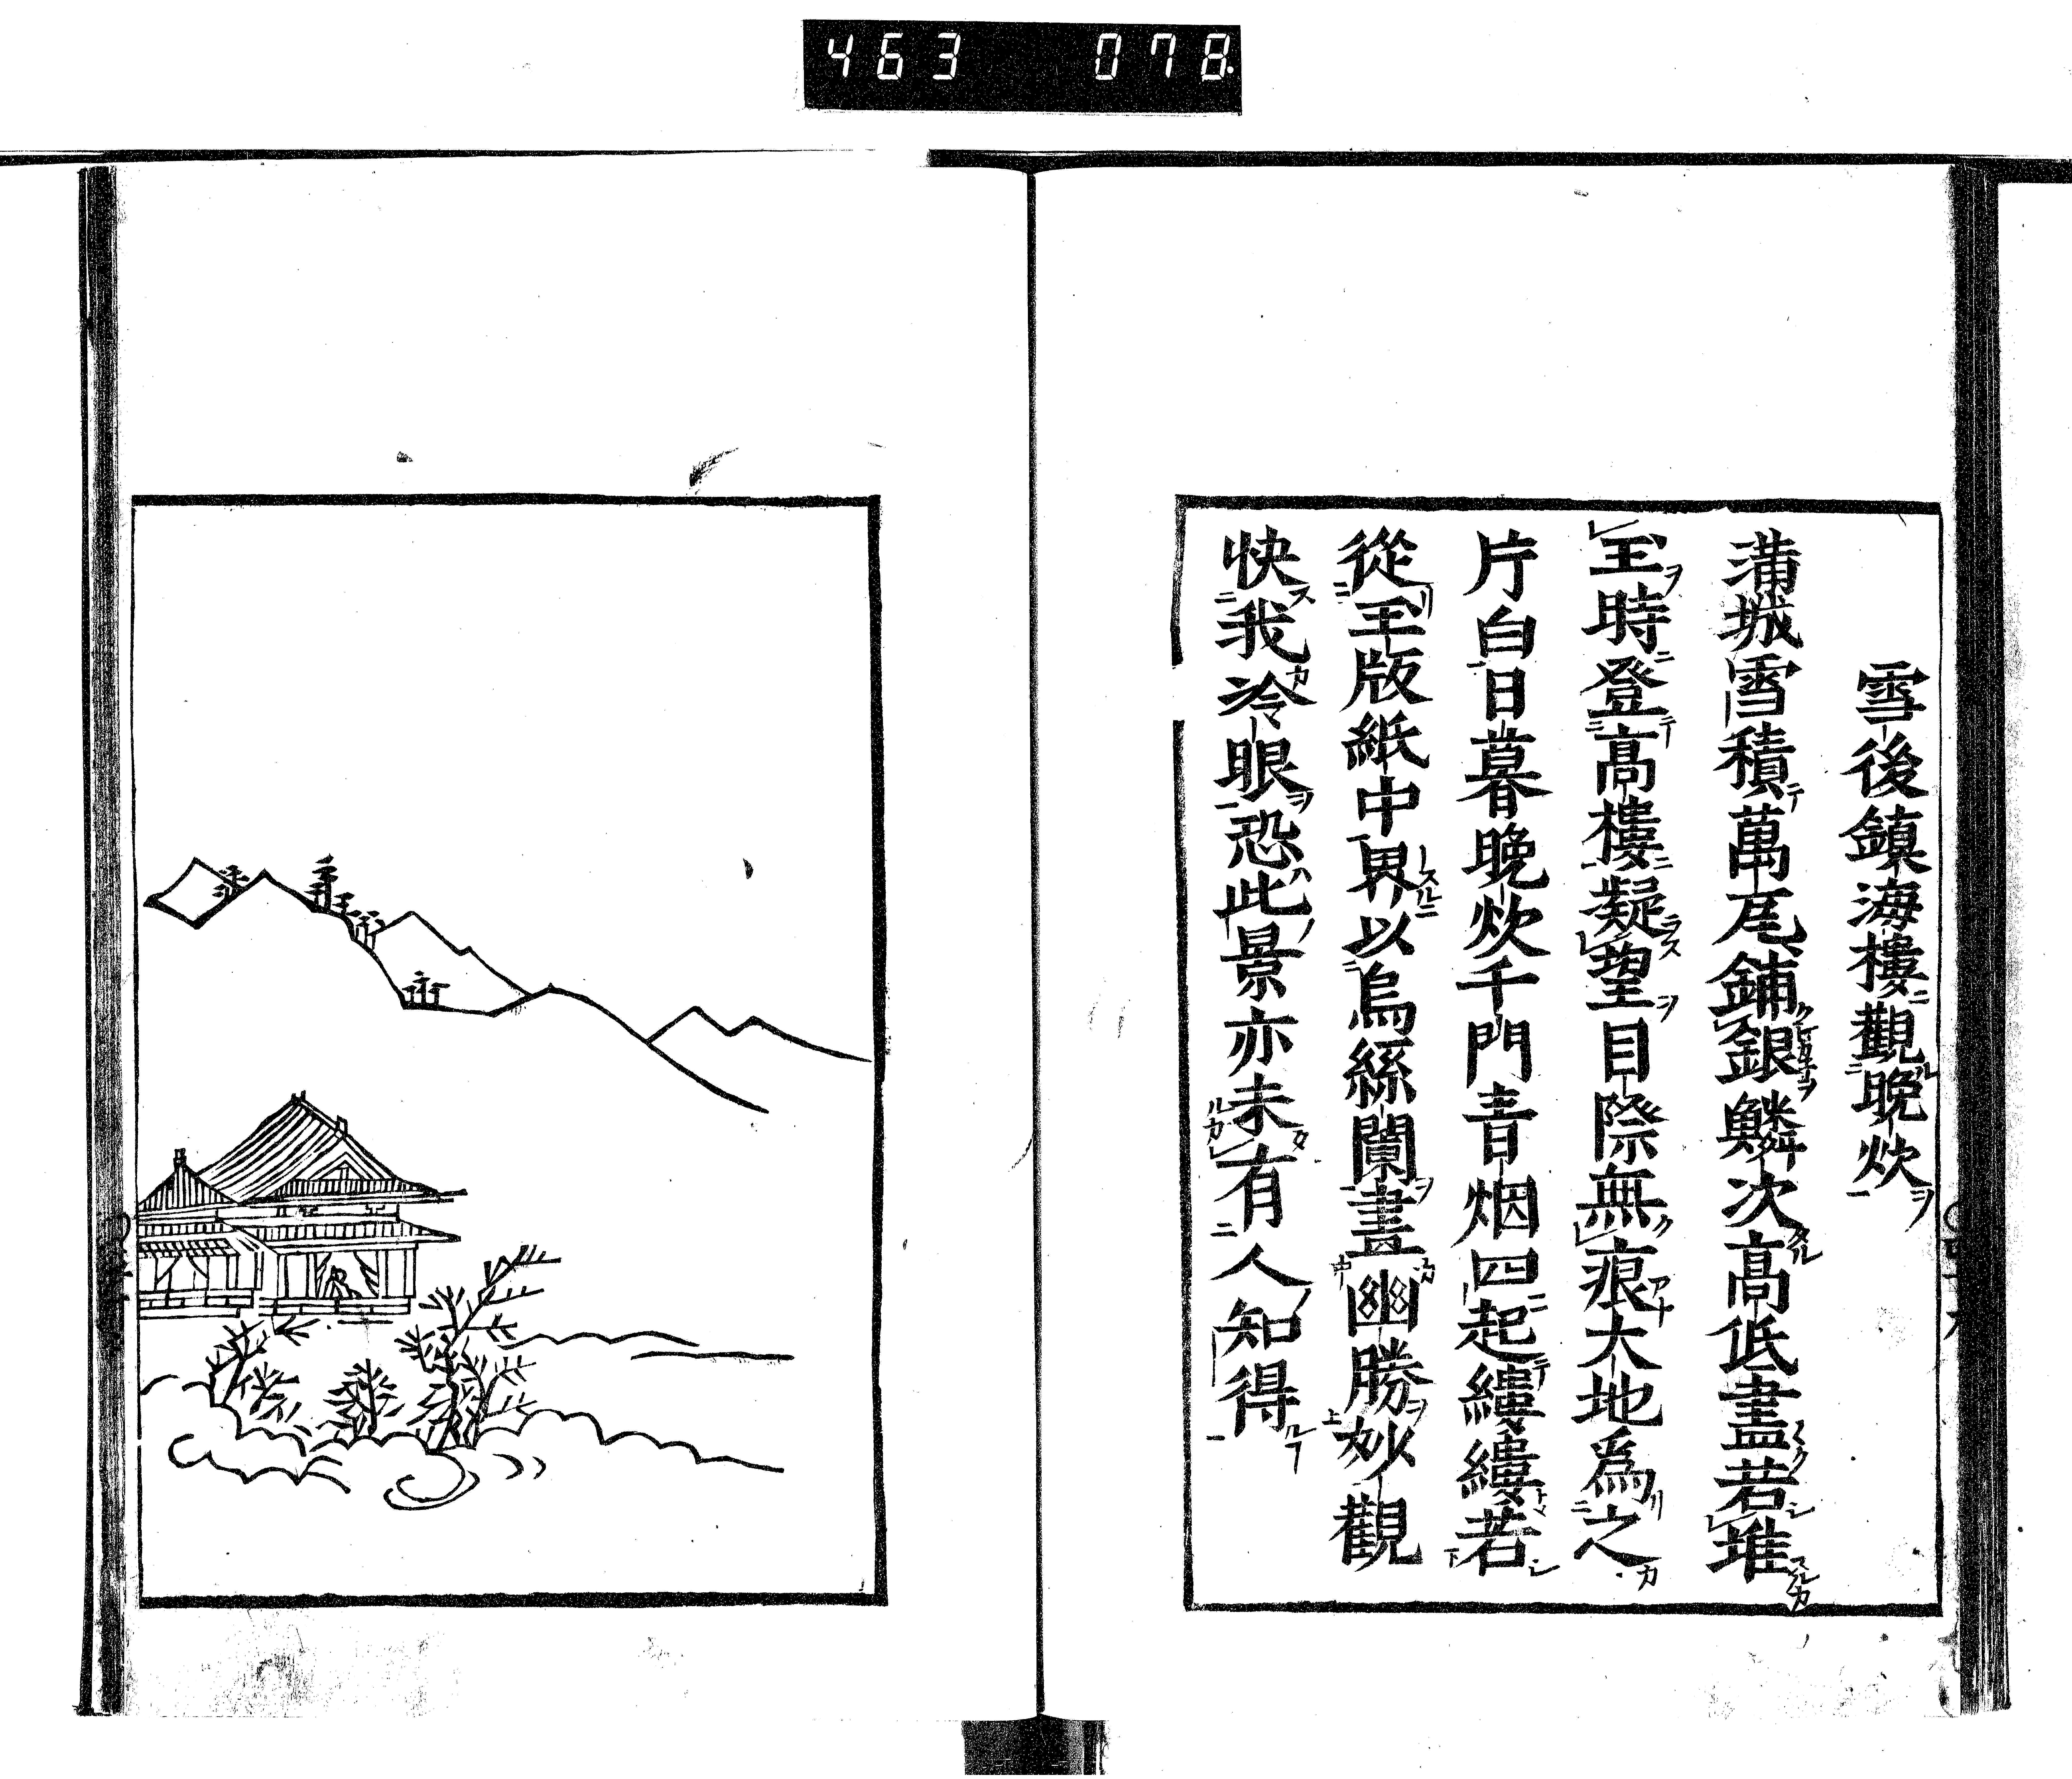 463 078
雪後鎮海樓觀晚炊
滿城雪積萬瓦鋪銀鱗次高低盡若堆
玉時登高樓凝望目際無痕大地爲之
片白日暮晚炊千門青烟四起縷縷若
從玉版紙中界以烏絲闌畫幽勝妙觀
快我冷眼恐此景亦未有人知得